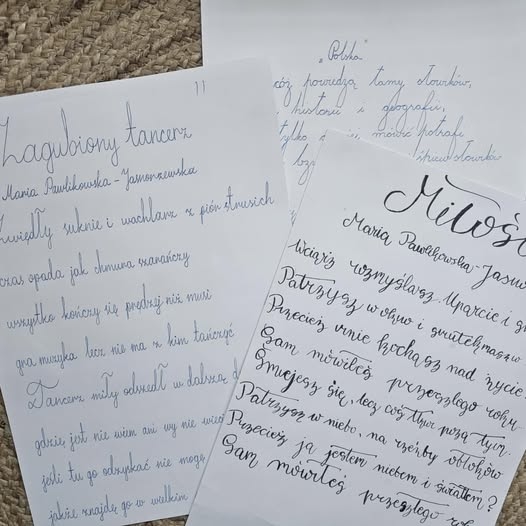 11
Zagubiony tancerz
Maria Pawlikowska-Jasnorzewska
Zwiędły suknie i wachlarz z piór strusich
czas opada jak chmura szarańczy
wszystko kończy się prędzej niż musi
gra muzyka lecz nie ma z kim tańczyć
Tancerz miły odszedł w dalszą
gdzie jest nie wiem ani wy nie
jeśli tu go odzyskać nie mogę
jakże znajdę go w wielkim
„Polska”
cóż powiedzą tamy słowików,
historii i geografii,
tylko mówić potrafi
Miłość
Maria Pawlikowska-
Wciąż rozmyślasz. Uparcie i
Patrzysz w okno i smutek masz w
Przecież mnie kochasz nad życie
Sam mówiłeś przeszłego roku
Śmiejesz się, lecz coś tkwi poza tym.
Patrzysz w niebo, na rzeźby obłoków
Przecież ja jestem niebem i światem?
Sam mówiłeś przeszłego